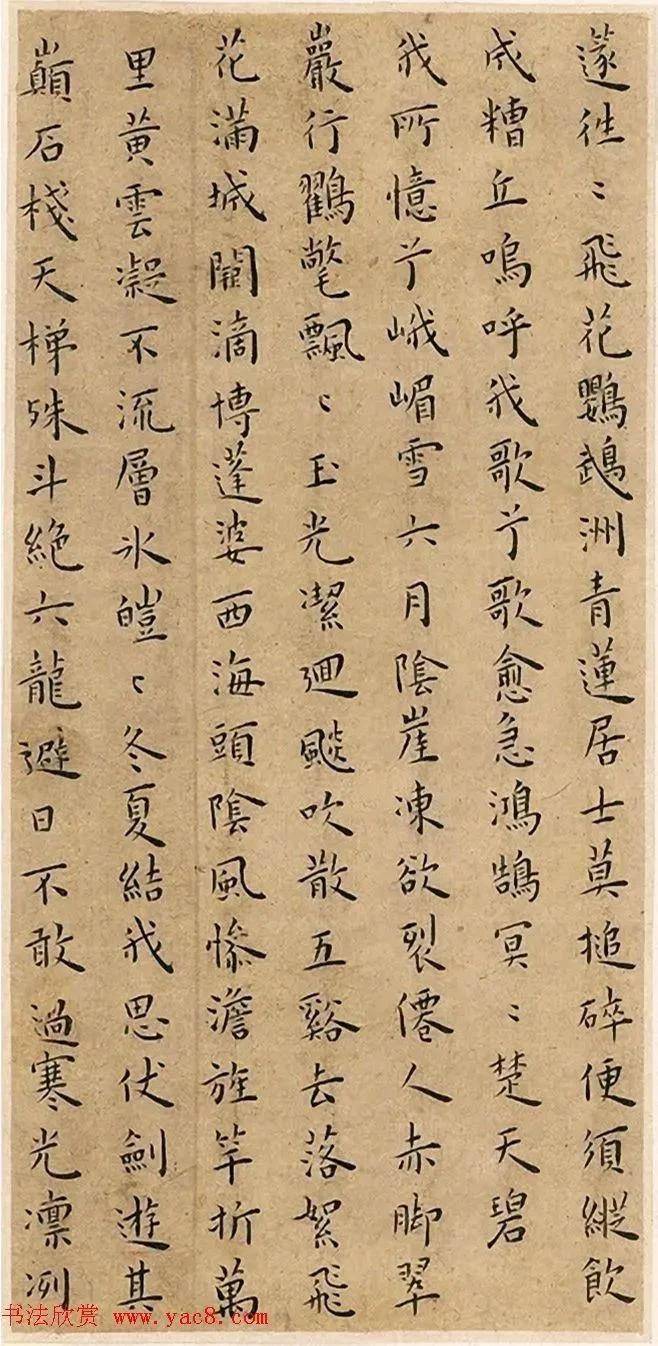 遂往〻飛花鸚鵡洲青蓮居士莫搥碎便須縱飲
成糟丘嗚呼我歌兮歌愈急鴻鵠冥〻楚天碧
我所憶兮峨嵋雪六月陰崖凍欲裂僊人赤脚翠
巖行鸛氅飄〻玉光潔迴飈吹散五谿去落絮飛
花滿城闕滴博蓬婆西海頭陰風慘澹旌竿折萬
里黃雲凝不流層氷皚〻冬夏結我思伏劍遊其
巔石棧天梯殊斗絕六龍避日不敢過寒光凛冽
书法欣赏 www.yac8.com